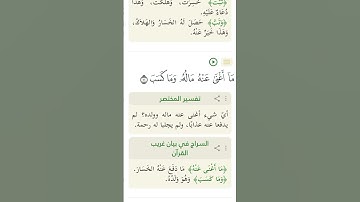 ﴿تَبَّتْ﴾ خَسِرَتْ، وَهَلَكَتْ، وَهَذَا
دُعَاءٌ عَلَيْهِ.
﴿وَتَبَّ﴾ حَصَلَ لَهُ الْخَسَارُ وَالْهَلَاكُ،
وَهَذَا خَبَرٌ عَنْهُ.
مَآ أَغْنَىٰ عَنْهُ مَالُهُۥ وَمَا كَسَبَ ٢
تفسير المختصر
أيّ شيء أغنى عنه ماله وولده؟ لم
يدفعا عنه عذابًا، ولم يجلبا له رحمة.
السراج في بيان غريب
القرآن
﴿مَا أَغْنَى عَنْهُ﴾ مَا دَفَعَ عَنْهُ الْخَسَارَ.
﴿وَمَا كَسَبَ﴾ وَهُوَ وَلَدُهُ.